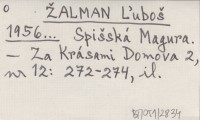 o ŽALMAN Ľuboš
1956... Spišská Magura.
- Za Krásami Domova 2,
nr 12: 272-274, il.